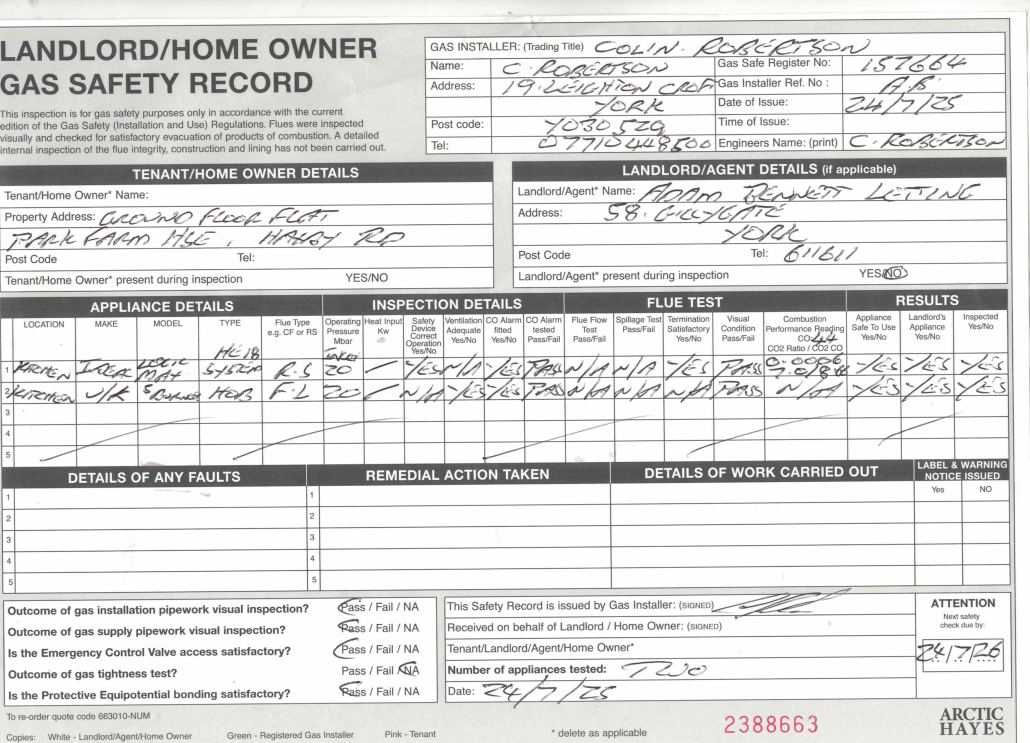 LANDLORD/HOME OWNER
GAS SAFETY RECORD
This inspection is for gas safety purposes only in accordance with the current
edition of the Gas Safety (Installation and Use) Regulations. Flues were inspected
visually and checked for satisfactory evacuation of products of combustion. A detailed
internal inspection of the flue integrity, construction and lining has not been carried out.
GAS INSTALLER: (Trading Title) COLIN. ROBERTSON
Name: C. ROBERTSON Gas Safe Register No: 157664
Address: 19. LEIGHTON CROFT Gas Installer Ref. No : A.B
YORK Date of Issue: 24/7/25
Post code: YO30 5ZQ Time of Issue:
Tel: 07710448500 Engineers Name: (print) C. ROBERTSON
TENANT/HOME OWNER DETAILS
Tenant/Home Owner* Name:
Property Address: GROUND FLOOR FLAT
PARK FARM HSE, HAXBY RD
Post Code Tel:
Tenant/Home Owner* present during inspection YES/NO
LANDLORD/AGENT DETAILS (if applicable)
Landlord/Agent* Name: ADAM BENNETT LETTING
Address: 58. GILLYGATE
YORK
Post Code Tel: 611611
Landlord/Agent* present during inspection YES/NO
APPLIANCE DETAILS INSPECTION DETAILS FLUE TEST RESULTS
LOCATION MAKE MODEL TYPE Flue Type e.g. CF or RS Operating Pressure Mbar Heat Input Kw Safety Device Correct Operation Yes/No Ventilation Adequate Yes/No CO Alarm fitted Yes/No CO Alarm tested Pass/Fail Flue Flow Test Pass/Fail Spillage Test Pass/Fail Termination Satisfactory Yes/No Visual Condition Pass/Fail Combustion Performance Reading CO2 Ratio / CO2 CO Appliance Safe To Use Yes/No Landlord's Appliance Yes/No Inspected Yes/No
1 KITCHEN IDEAL LOGIC MAX HE18 SYSTEM R.S 20 YES N/A YES PASS N/A N/A YES PASS 44 0.0006 YES YES YES
2 KITCHEN U/K 5 BURNER HOB F.L 20 N/A YES YES PASS N/A N/A N/A PASS N/A YES YES YES
3
4
5
DETAILS OF ANY FAULTS REMEDIAL ACTION TAKEN DETAILS OF WORK CARRIED OUT LABEL & WARNING NOTICE ISSUED
Yes NO
1 1
2 2
3 3
4 4
5 5
Outcome of gas installation pipework visual inspection? Pass / Fail / NA
Outcome of gas supply pipework visual inspection? Pass / Fail / NA
Is the Emergency Control Valve access satisfactory? Pass / Fail / NA
Outcome of gas tightness test? Pass / Fail / NA
Is the Protective Equipotential bonding satisfactory? Pass / Fail / NA
This Safety Record is issued by Gas Installer: (SIGNED)
Received on behalf of Landlord / Home Owner: (SIGNED)
Tenant/Landlord/Agent/Home Owner*
Number of appliances tested: TWO
Date: 24/7/25
ATTENTION
Next safety
check due by:
24/7/26
To re-order quote code 663010-NUM
Copies: White - Landlord/Agent/Home Owner Green - Registered Gas Installer Pink - Tenant * delete as applicable
2388663
ARCTIC
HAYES